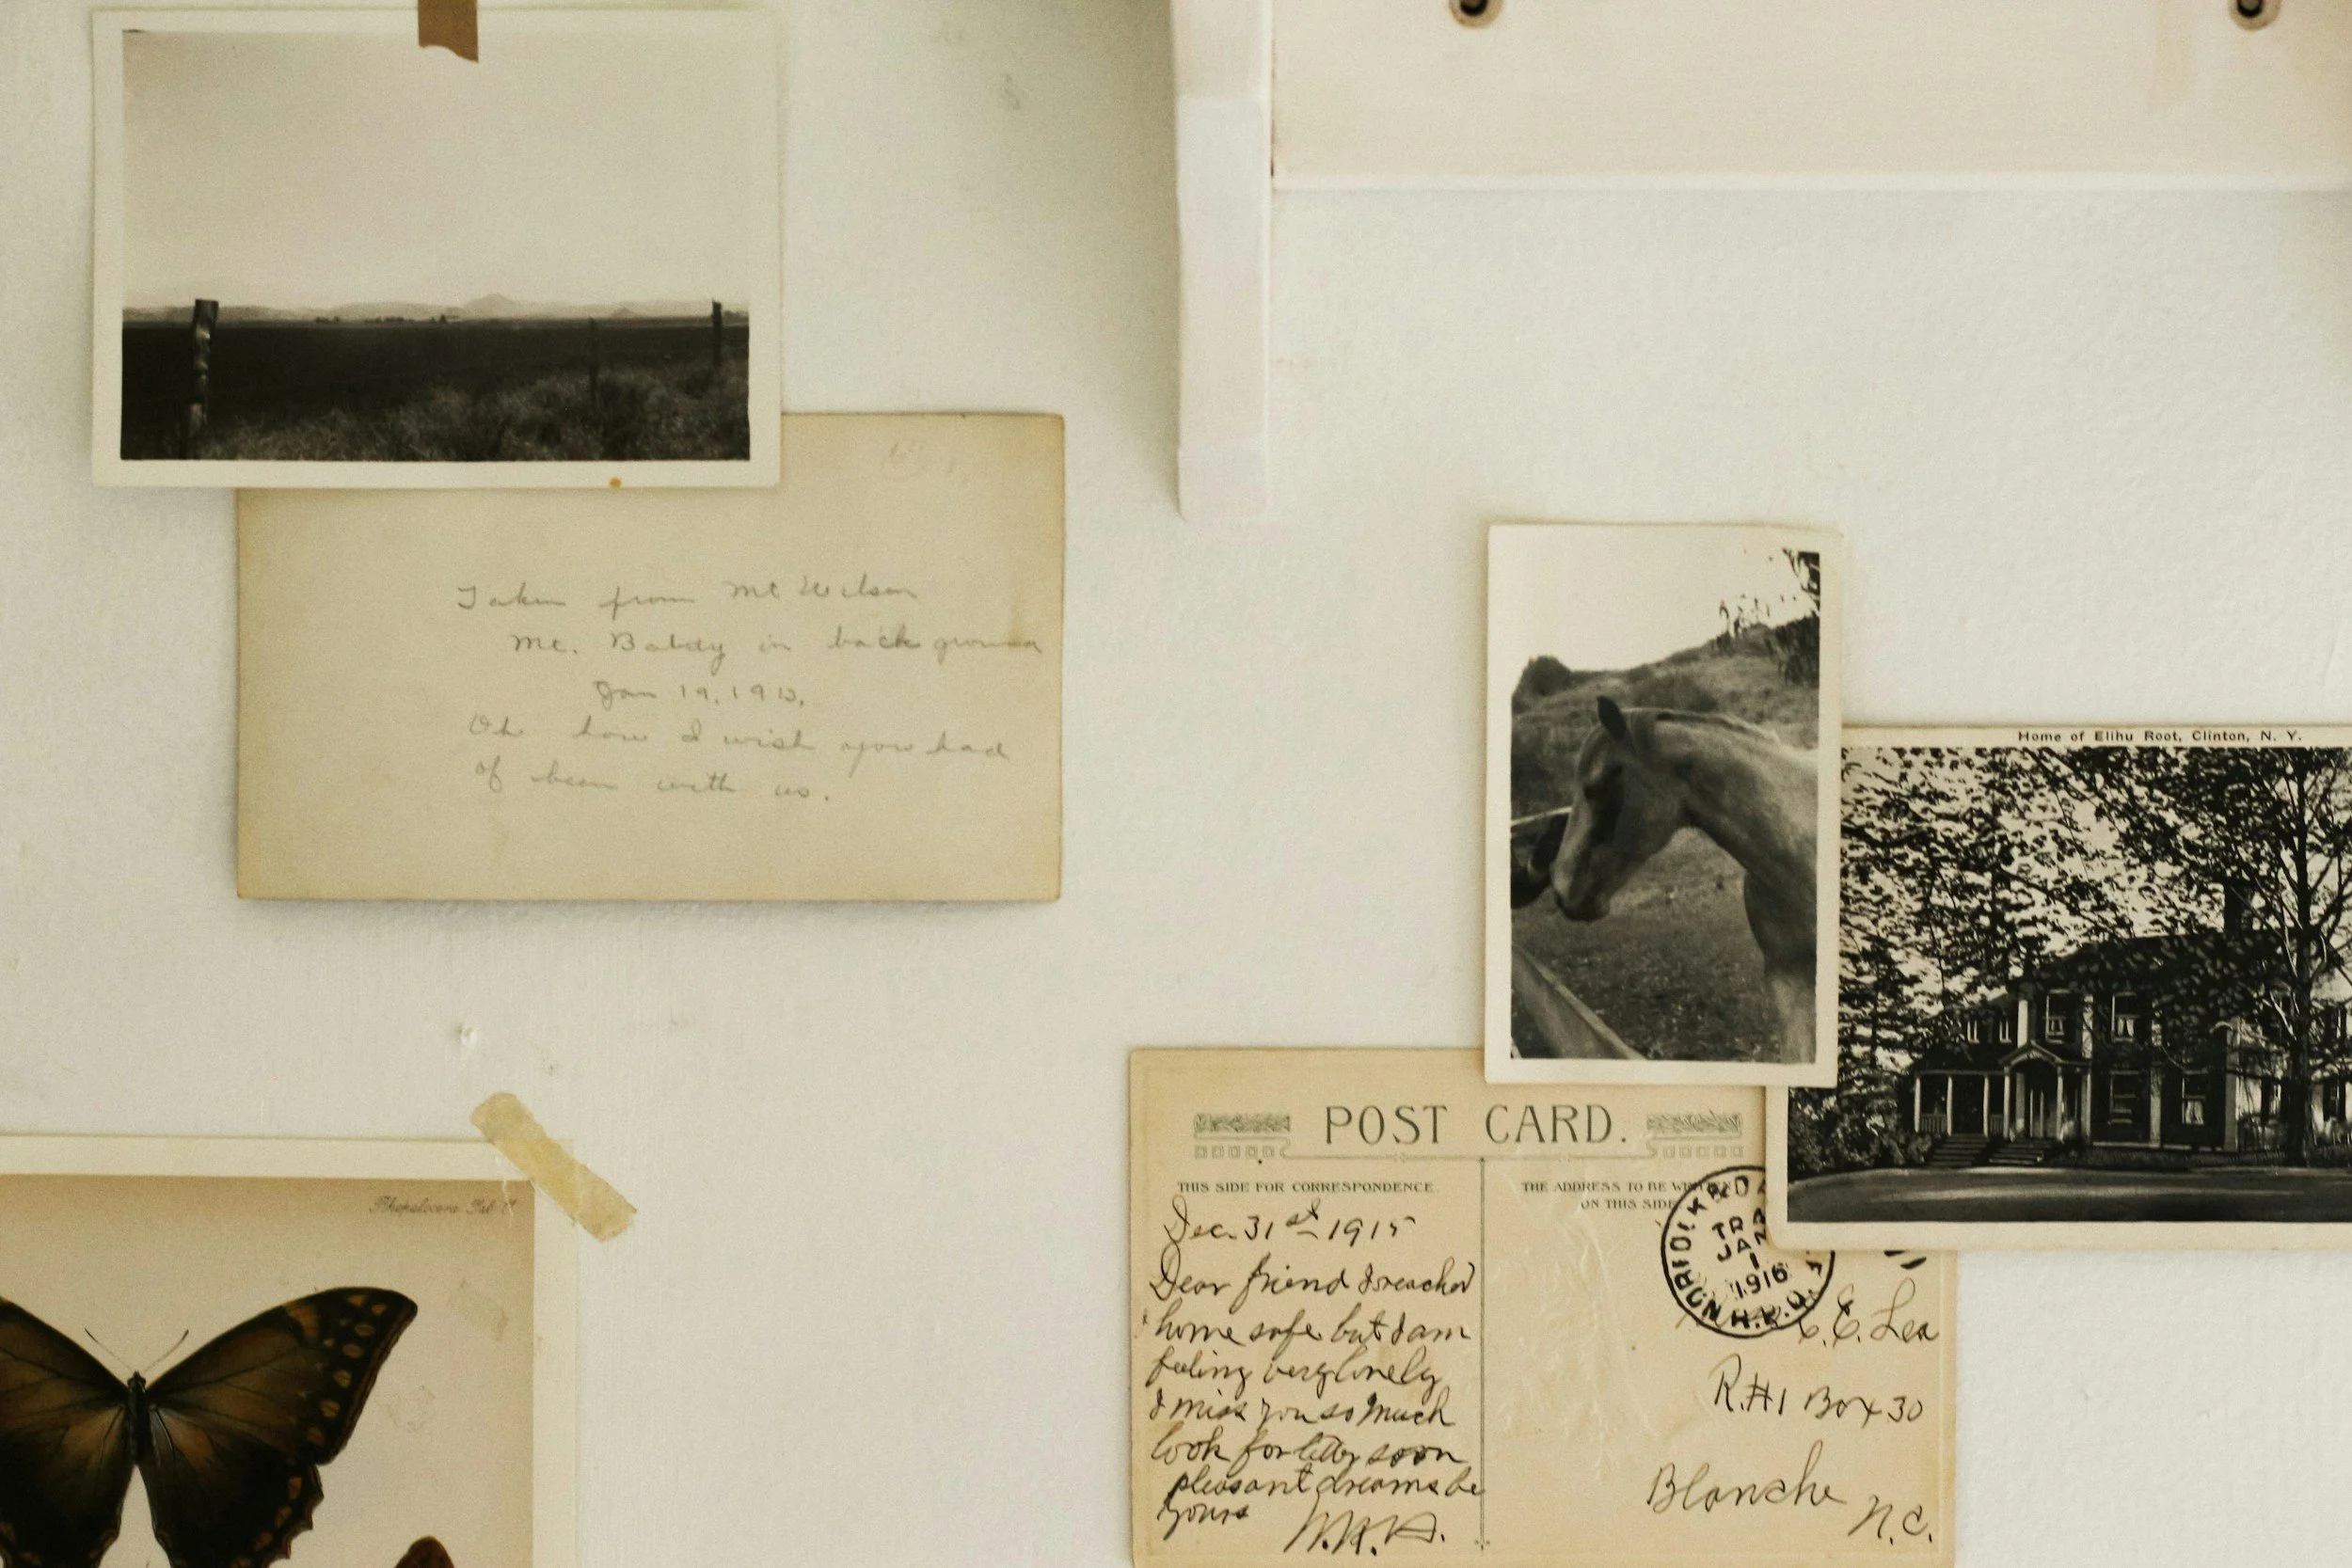 Taken from Mt Wilson
Mt. Baldy in back ground
Jan 19, 1913.
Oh how I wish you had
of been with us.
Home of Elihu Root, Clinton, N. Y.
POST CARD.
THIS SIDE FOR CORRESPONDENCE.
Dec. 31st 1915
Dear friend I reached
home safe but I am
feeling very lonely
I miss you so much
look for letter soon
pleasant dreams be
yours
THE ADDRESS TO BE
ON THIS SIDE
JAN
1
1916
C. E. Lea
R.#1 Box 30
Blanche
N.C.
Rhopalocera